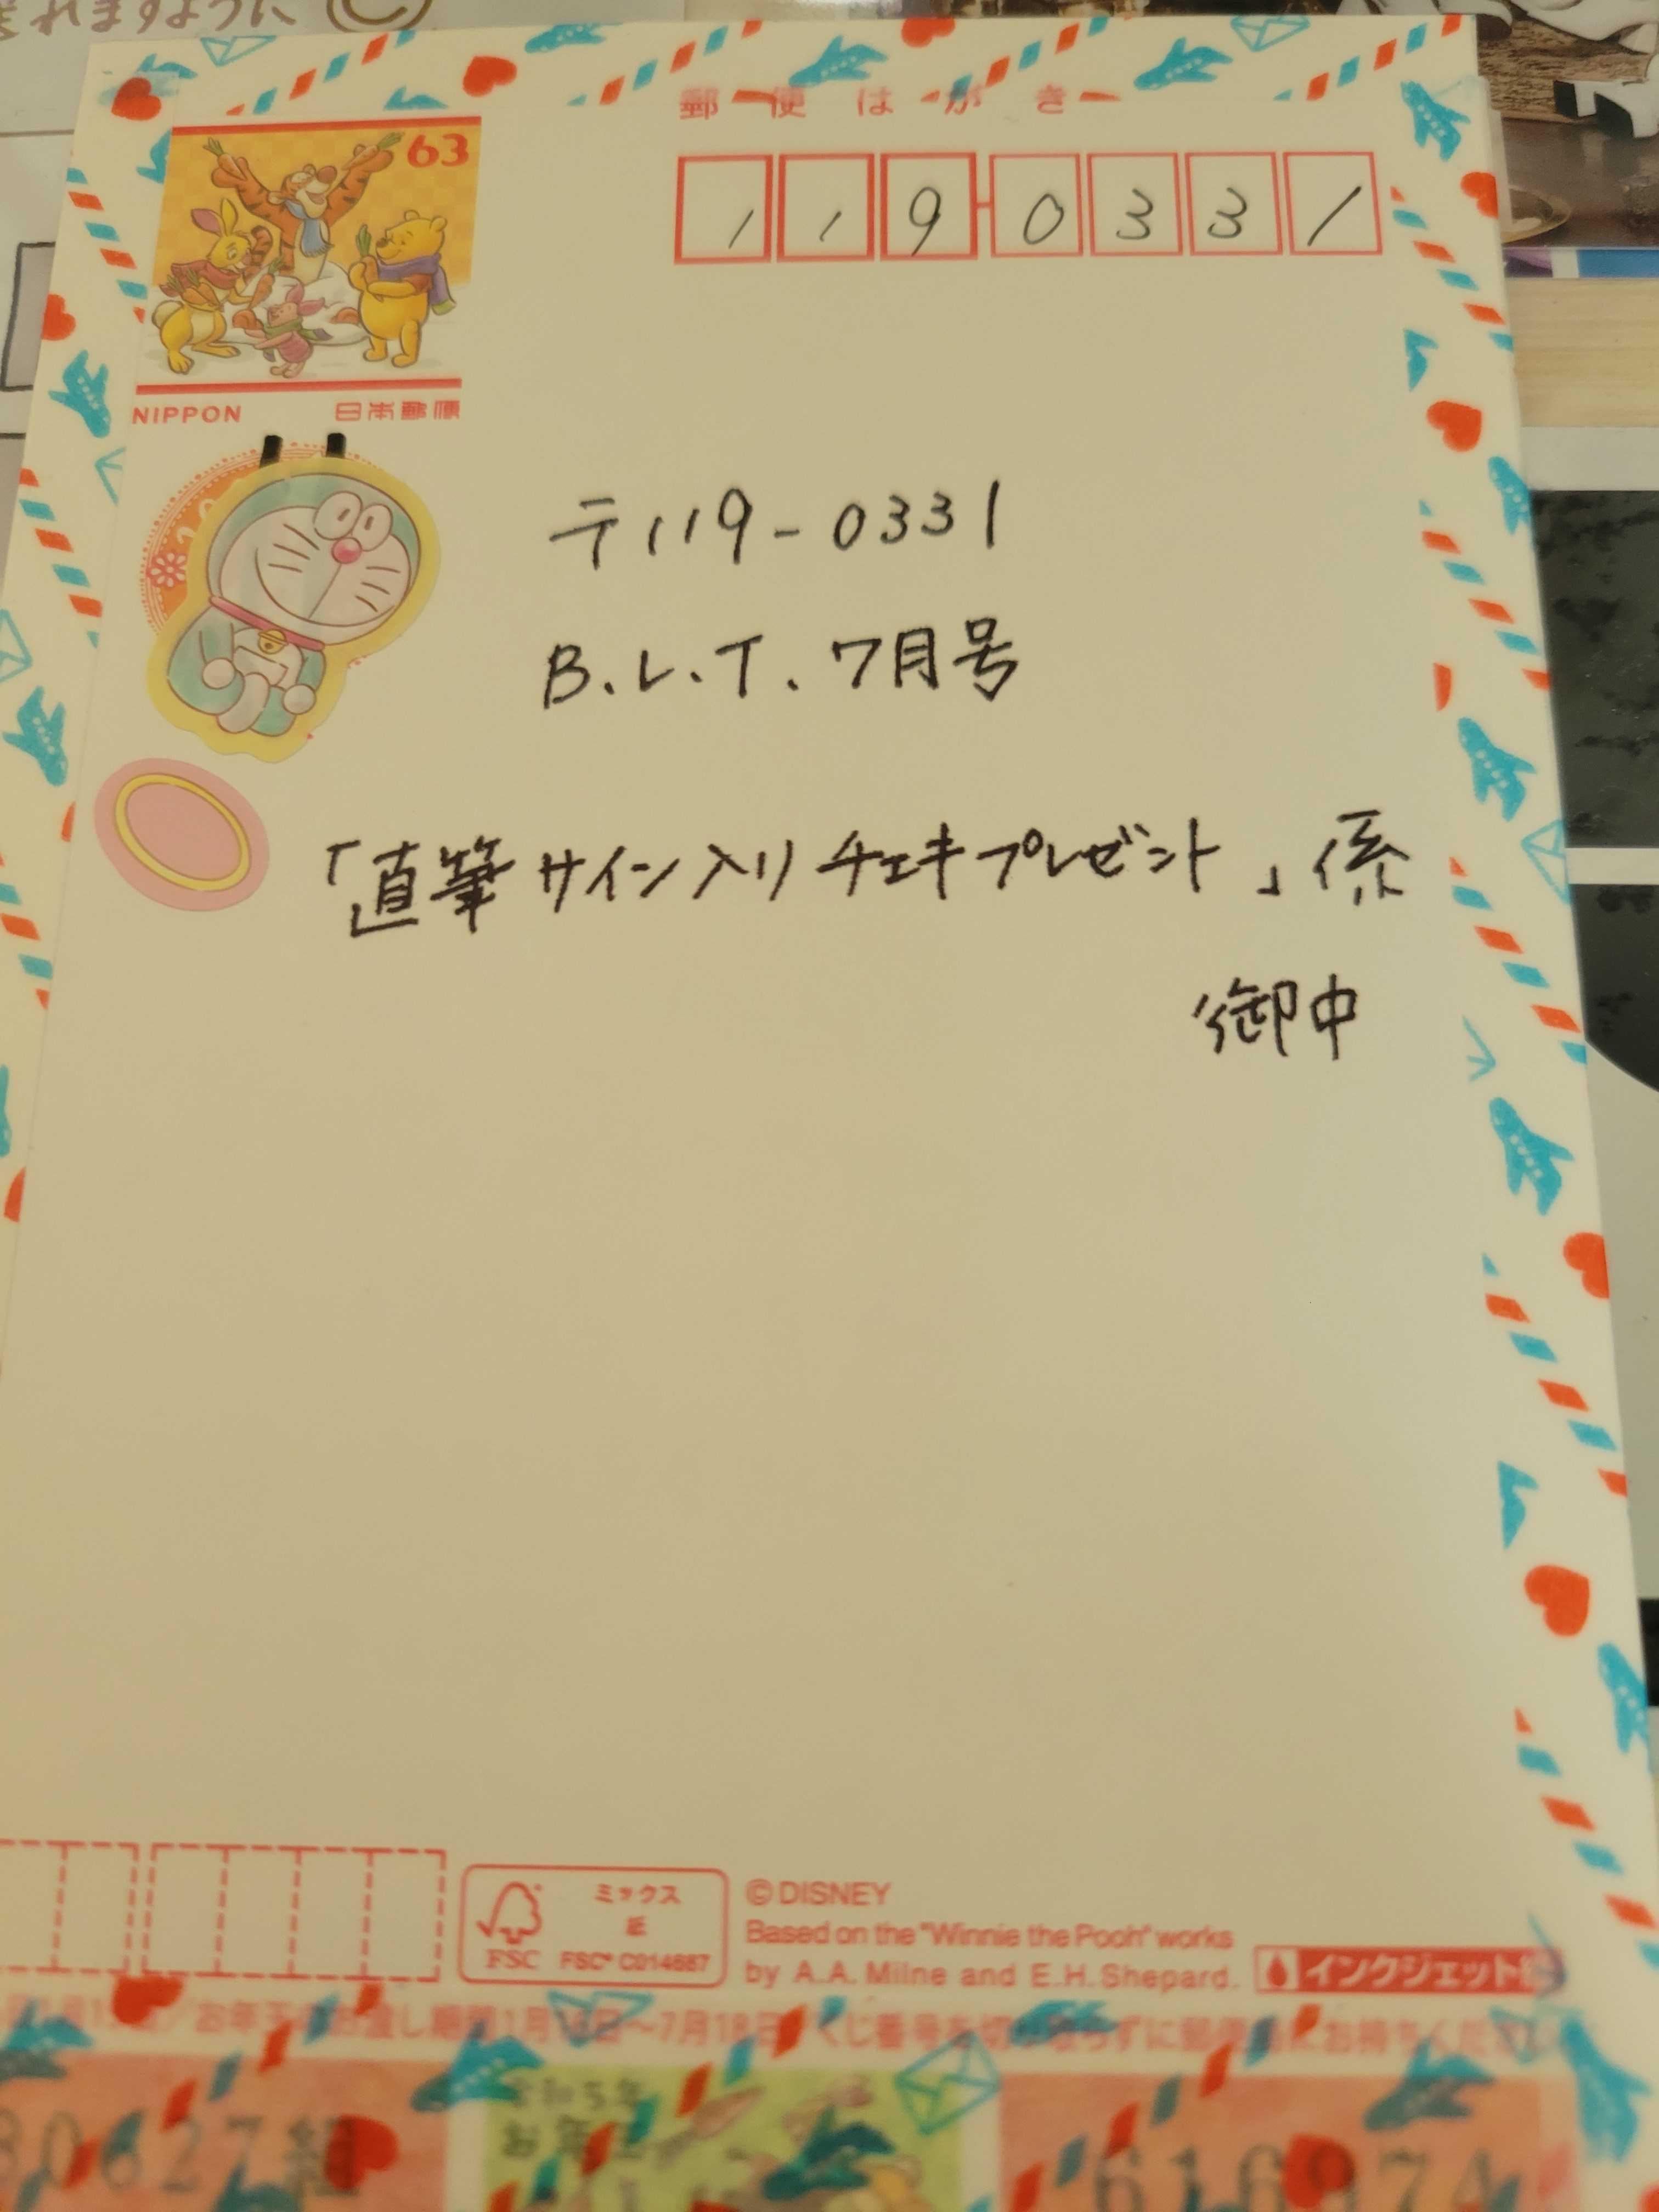 れますように
郵便はがき
63
1190331
NIPPON 日本郵便
〒119-0331
B.L.T.7月号
「直筆サイン入りチェキプレゼント」係
御中
ミックス
紙
FSC FSC® C014687
©DISNEY
Based on the "Winnie the Pooh" works
by A.A. Milne and E.H. Shepard.
インクジェット
お年玉のお渡し期間1月16日～7月18日 くじ番号を切り取らずに郵便局にお持ちくだ
令和5年
お年玉
30627組
616974